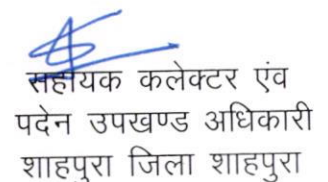 सहायक कलेक्टर एंव
पदेन उपखण्ड अधिकारी
शाहपुरा जिला शाहपुरा